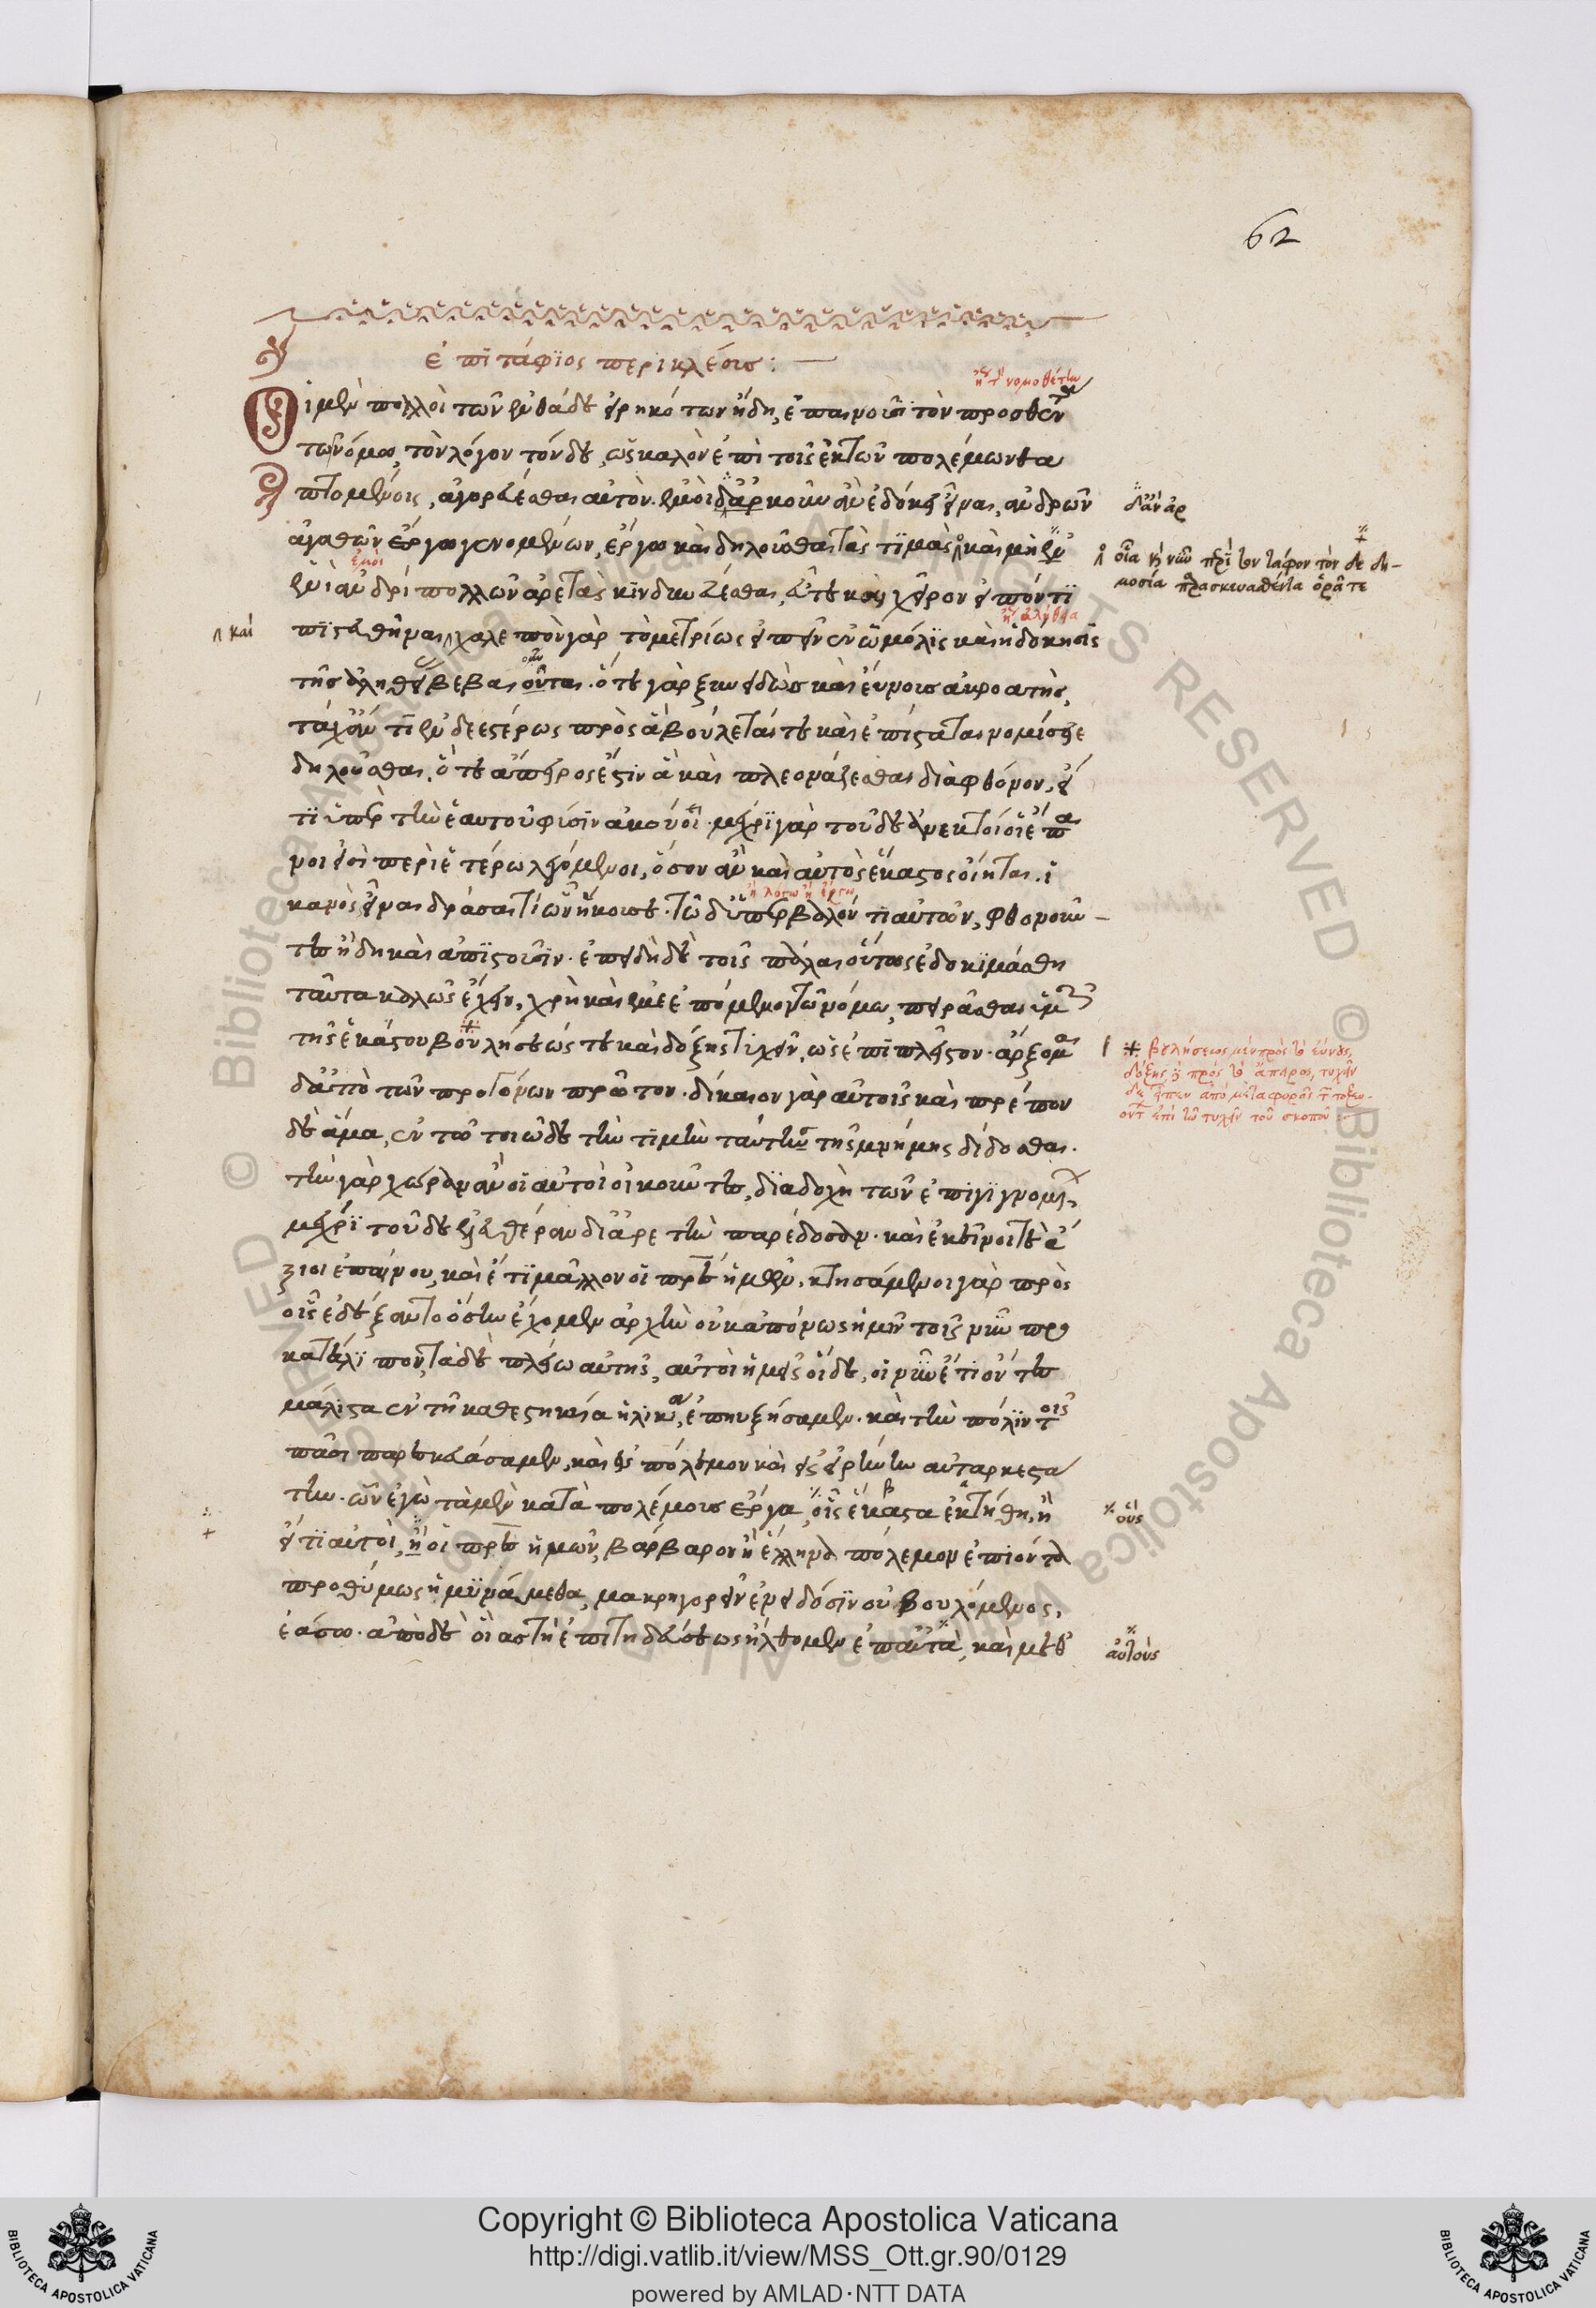 62
ἐπιτάφιος περικλέους:
ἢ τ νομοθέτην
Οἱ μὲν πολλοὶ τῶν ἐνθάδε εἰρηκότων ἤδη, ἐπαινοῦσι τὸν προσθέντα
τῶ νόμω, τὸν λόγον τόνδε, ὡς καλὸν ἐπὶ τοῖς ἐκ τῶν πολέμων θα
πτομένοις, ἀγορεύεσθαι αὐτόν. ἐμοὶ δ' ἀρκοῦν ἂν ἐδόκει εἶναι, ἀνδρῶν
δ' ἂν ἀρ
ἀγαθῶν ἔργω γενομένων, ἔργω καὶ δηλοῦσθαι τὰς τιμὰς καὶ μὴ ἐν
οἷα καὶ νῦν περὶ τὸν τάφον τόνδε δη-
μοσία παρασκευασθέντα ὁρᾶτε
ἐμοὶ
ἑνὶ ἀνδρὶ πολλῶν ἀρετὰς κινδυνεύεσθαι, εὖ τε καὶ χεῖρον εἰπόντι
ἡ ἀλήθεια
καὶ
πιστευθῆναι χαλεπὸν γὰρ τὸ μετρίως εἰπεῖν ἐν ὧ μόλις καὶ ἡ δόκησις
τῆς ἀληθείας βεβαιοῦται. ὅ τε γὰρ ξυνειδὼς καὶ εὔνους ἀκροατὴς,
τάχ' ἄν τι ἐνδεεστέρως πρὸς ἃ βούλεταί τε καὶ ἐπίσταται νομίσειε
δηλοῦσθαι, ὅ τε ἄπειρος ἔστιν ἃ καὶ πλεονάζεσθαι διὰ φθόνον, εἴ
τι ὑπὲρ τὴν ἑαυτοῦ φύσιν ἀκούοι. μέχρι γὰρ τοῦδε ἀνεκτοὶ οἱ ἔπαι
νοι εἰσὶ περὶ ἑτέρων λεγόμενοι, ὅσον ἂν καὶ αὐτὸς ἕκαστος οἴηται. ἱ
ἢ λόγω ἢ ἔργω
κανὸς εἶναι δρᾶσαί τι ὧν ἤκουσε. τῶ δ' ὑπερβάλλοντι αὐτῶν, φθονοῦν-
τες ἤδη καὶ ἀπιστοῦσιν. ἐπειδὴ δὲ τοῖς πάλαι οὕτως ἐδοκιμάσθη
ταῦτα καλῶς ἔχειν, χρὴ καὶ ἐμὲ ἑπόμενον τῶ νόμω, πειρᾶσθαι ὑμῶν
τῆς ἑκάστου βουλήσεώς τε καὶ δόξης τυχεῖν, ὡς ἐπὶ πλεῖστον. ἄρξομαι
βουλήσεως μὲν πρὸς τὸ εὔνους,
δόξης δὲ πρὸς τὸ ἄπειρος, τυχεῖν
δὲ εἶπεν ἀπὸ μεταφορᾶς τ τοξευ-
όντ ἐπὶ τῶ τυχεῖν τοῦ σκοποῦ
δ' ἀπὸ τῶν προγόνων πρῶτον. δίκαιον γὰρ αὐτοῖς καὶ πρέπον
δὲ ἅμα, ἐν τῶ τοιῶδε τὴν τιμὴν ταύτην τῆς μνήμης δίδοσθαι.
τὴν γὰρ χώραν ἀεὶ οἱ αὐτοὶ οἰκοῦντες, διαδοχῆ τῶν ἐπιγιγνομένων
μέχρι τοῦδε ἐλευθέραν δι' ἀρετὴν παρέδοσαν. καὶ ἐκεῖνοί τε ἄ
ξιοι ἐπαίνου, καὶ ἔτι μᾶλλον οἱ πατέρες ἡμῶν. κτησάμενοι γὰρ πρὸς
οἷς ἐδέξαντο ὅσην ἔχομεν ἀρχὴν οὐκ ἀπόνως ἡμῖν τοῖς νῦν προσ
κατέλιπον, τὰ δὲ πλείω αὐτῆς, αὐτοὶ ἡμεῖς οἵδε, οἱ νῦν ἔτι ὄντες
μάλιστα ἐν τῆ καθεστηκυία ἡλικία, ἐπηυξήσαμεν. καὶ τὴν πόλιν τοῖς
πᾶσι παρεσκευάσαμεν, καὶ ἐς πόλεμον καὶ ἐς εἰρήνην αὐταρκεστά
την. ὧν ἐγὼ τὰ μὲν κατὰ πολέμους ἔργα, οἷς ἕκαστα ἐκτήθη, ἢ
οὓς
εἴ τι αὐτοὶ, ἢ οἱ πατέρες ἡμῶν, βάρβαρον ἢ ἕλληνα πόλεμον ἐπιόντα
προθύμως ἠμυνάμεθα, μακρηγορεῖν ἐν εἰδόσιν οὐ βουλόμενος,
ἐάσω. ἀπὸ δὲ οἵας τῆς ἐπιτηδεύσεως ἤλθομεν ἐπ' αὐτὰ, καὶ μεθ'
αὐτοὺς
Copyright © Biblioteca Apostolica Vaticana
http://digi.vatlib.it/view/MSS_Ott.gr.90/0129
powered by AMLAD·NTT DATA